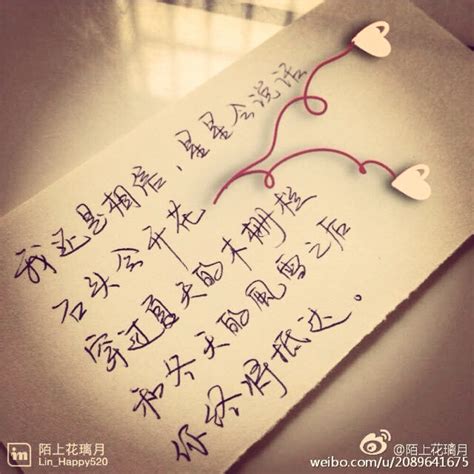 我还是相信，星星会说话
石头会开花
穿过夏天的木栅栏
和冬天的风雪之后
你终将抵达。
in 陌上花璃月
Lin_Happy520
@陌上花璃月
weibo.com/u/2089641675